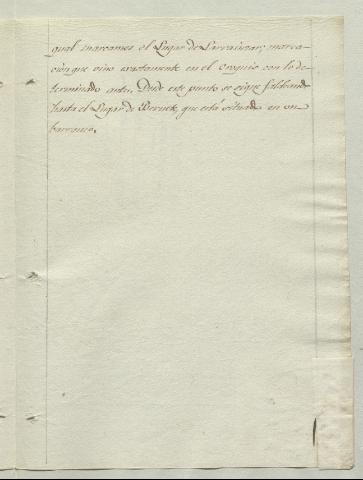 qual marcamos el Lugar de Larrainzar; marca-
cion que vino exactamente en el croquis con lo de-
terminado antes. Desde este punto se sigue faldeando
hasta el Lugar de Beruete, que está situado en un
barranco.